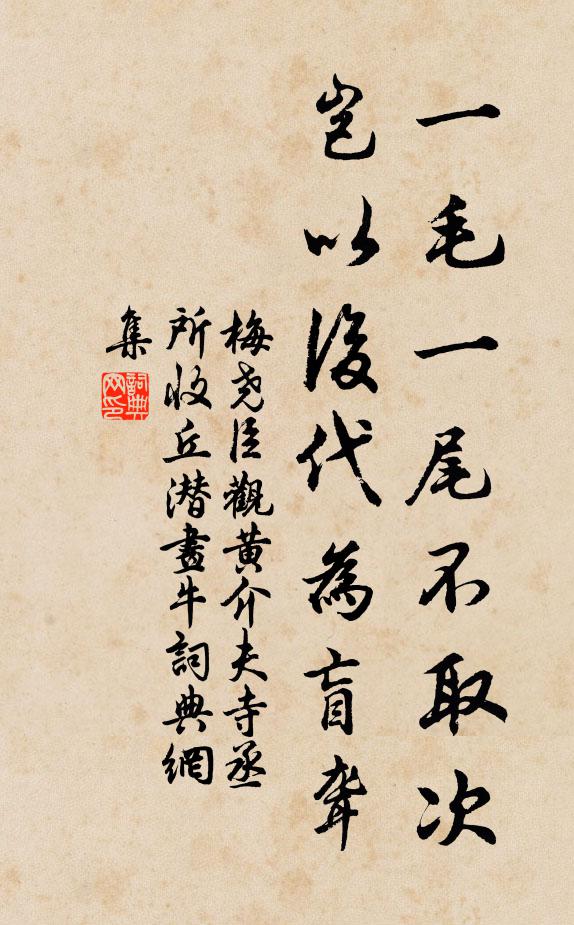 一毛一尾不取次
豈以後代為盲聾
梅堯臣觀黃介夫寺丞
所收丘潛畫牛詞典網
集
詞典
网印